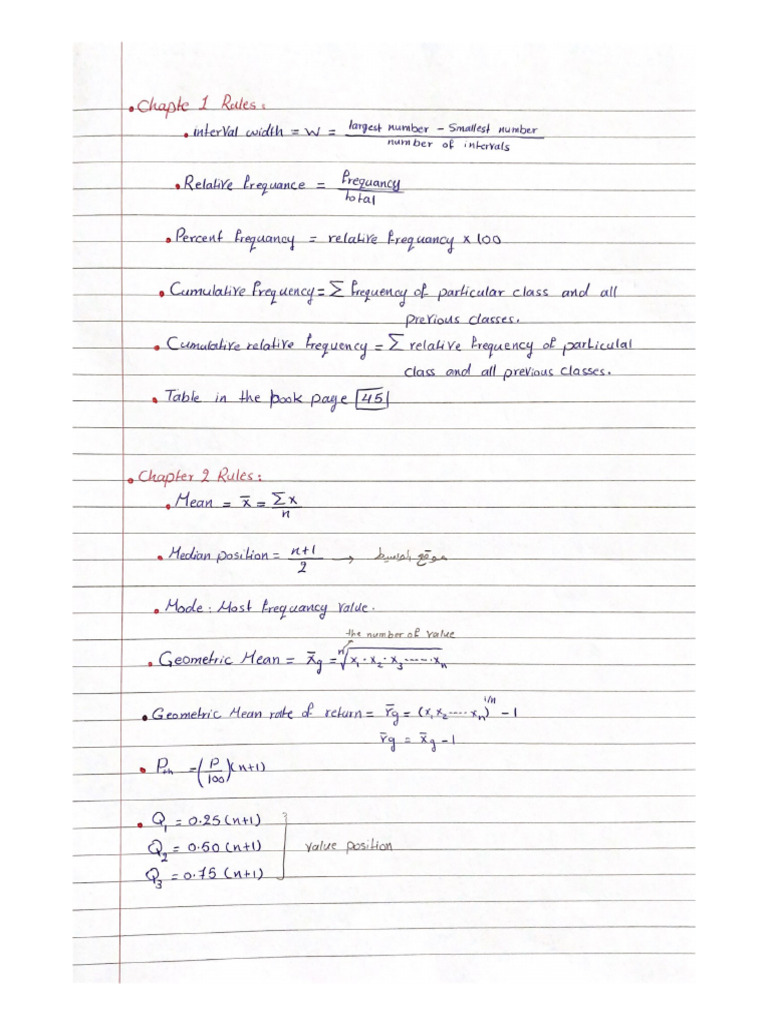 • Chapte 1 Rules:
• interval width = W = largest number - Smallest number / number of intervals
• Relative frequance = frequancy / total
• Percent frequancy = relative frequancy × 100
• Cumulative frequency = Σ frequency of particular class and all
previous classes.
• Cumulative relative frequency = Σ relative frequency of particulal
class and all previous classes.
• Table in the book page 45
• Chapter 2 Rules:
• Mean = x̄ = Σx / n
• Median position = n+1 / 2 → موقع الوسيط
• Mode: Most frequancy value.
the number of value
• Geometric Mean = x̄g = ⁿ√x₁·x₂·x₃·····xₙ
• Geometric Mean rate of return = r̄g = (x₁x₂····xₙ)^1/n - 1
r̄g = x̄g - 1
• Pth = (P/100)(n+1)
• Q₁ = 0.25(n+1)
Q₂ = 0.50(n+1) value position
Q₃ = 0.75(n+1)